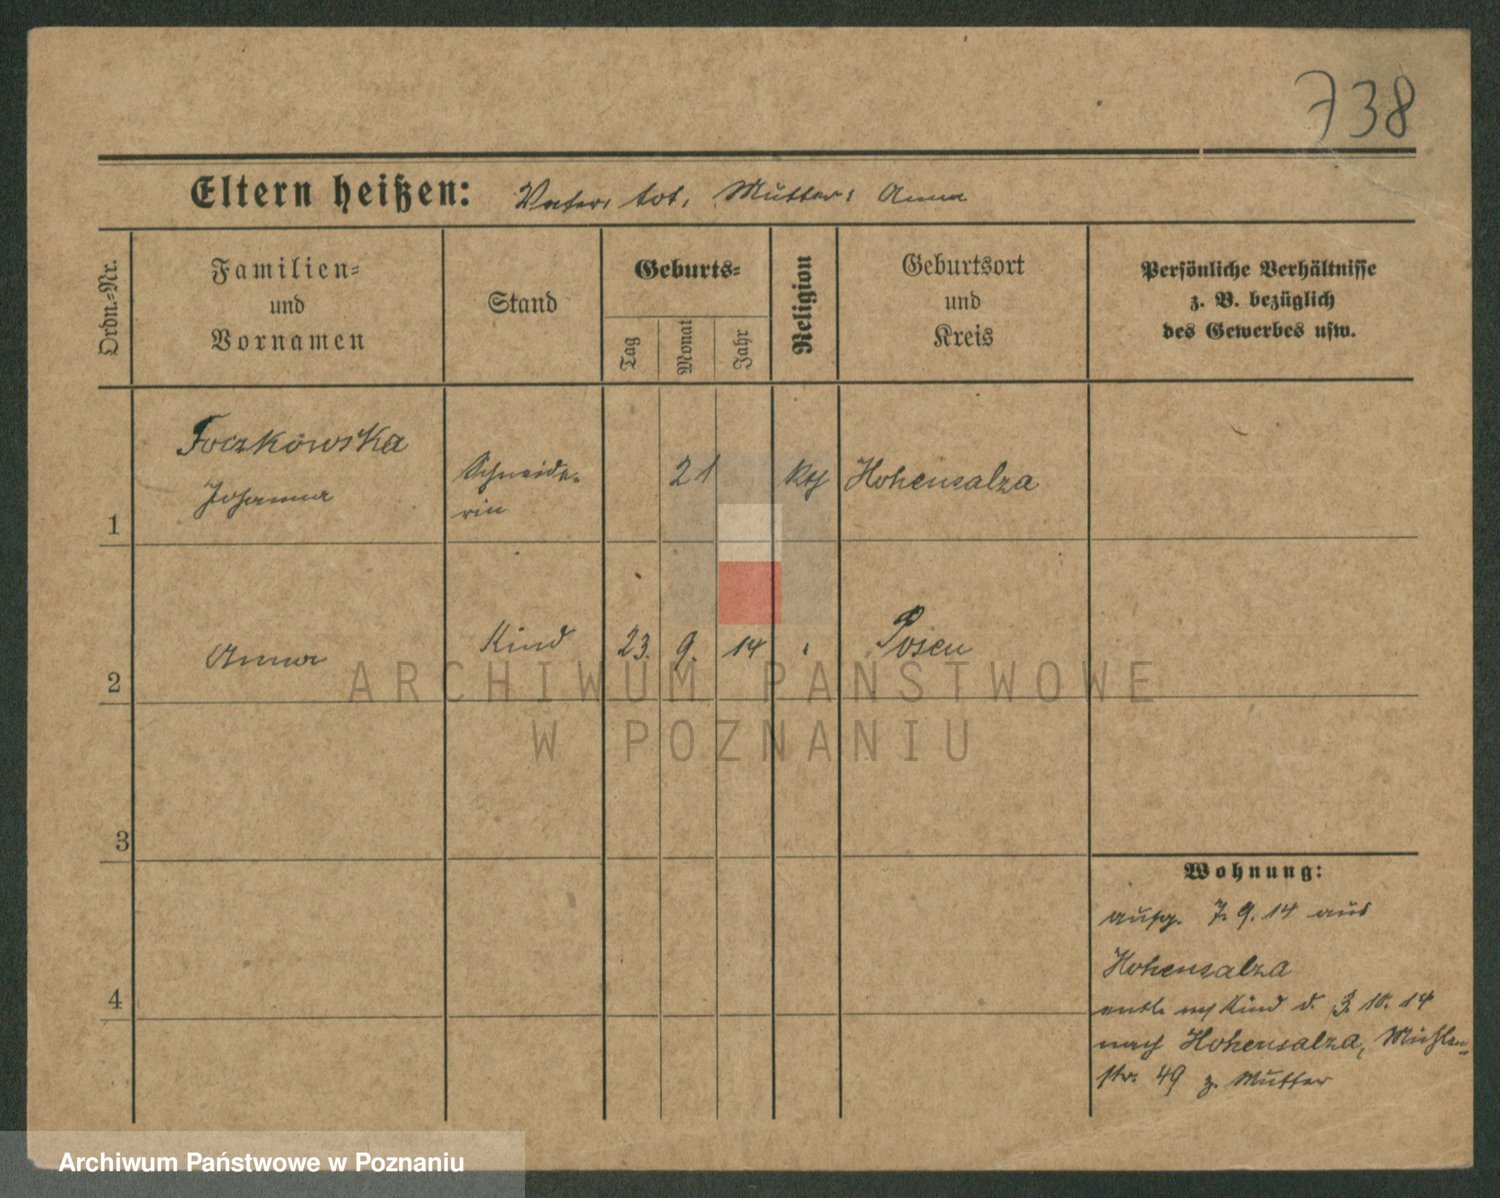 738
Eltern heißen: Vater: tot, Mutter: Anna
Ordn.-Nr.
Familien-
und
Vornamen
Stand
Geburts-
Tag
Monat
Jahr
Religion
Geburtsort
und
Kreis
Persönliche Verhältnisse
z. B. bezüglich
des Gewerbes usw.
1
Foczkowska
Johanna
Schneide-
rin
21
kth
Hohensalza
2
Anna
Kind
23. 9. 14
Posen
3
4
Wohnung:
aufg. 7. 9. 14 aus
Hohensalza
entl. Kind d. 3. 10. 14
nach Hohensalza, Mühlen-
str. 49 z. Mutter
ARCHIWUM PAŃSTWOWE
W POZNANIU
Archiwum Państwowe w Poznaniu